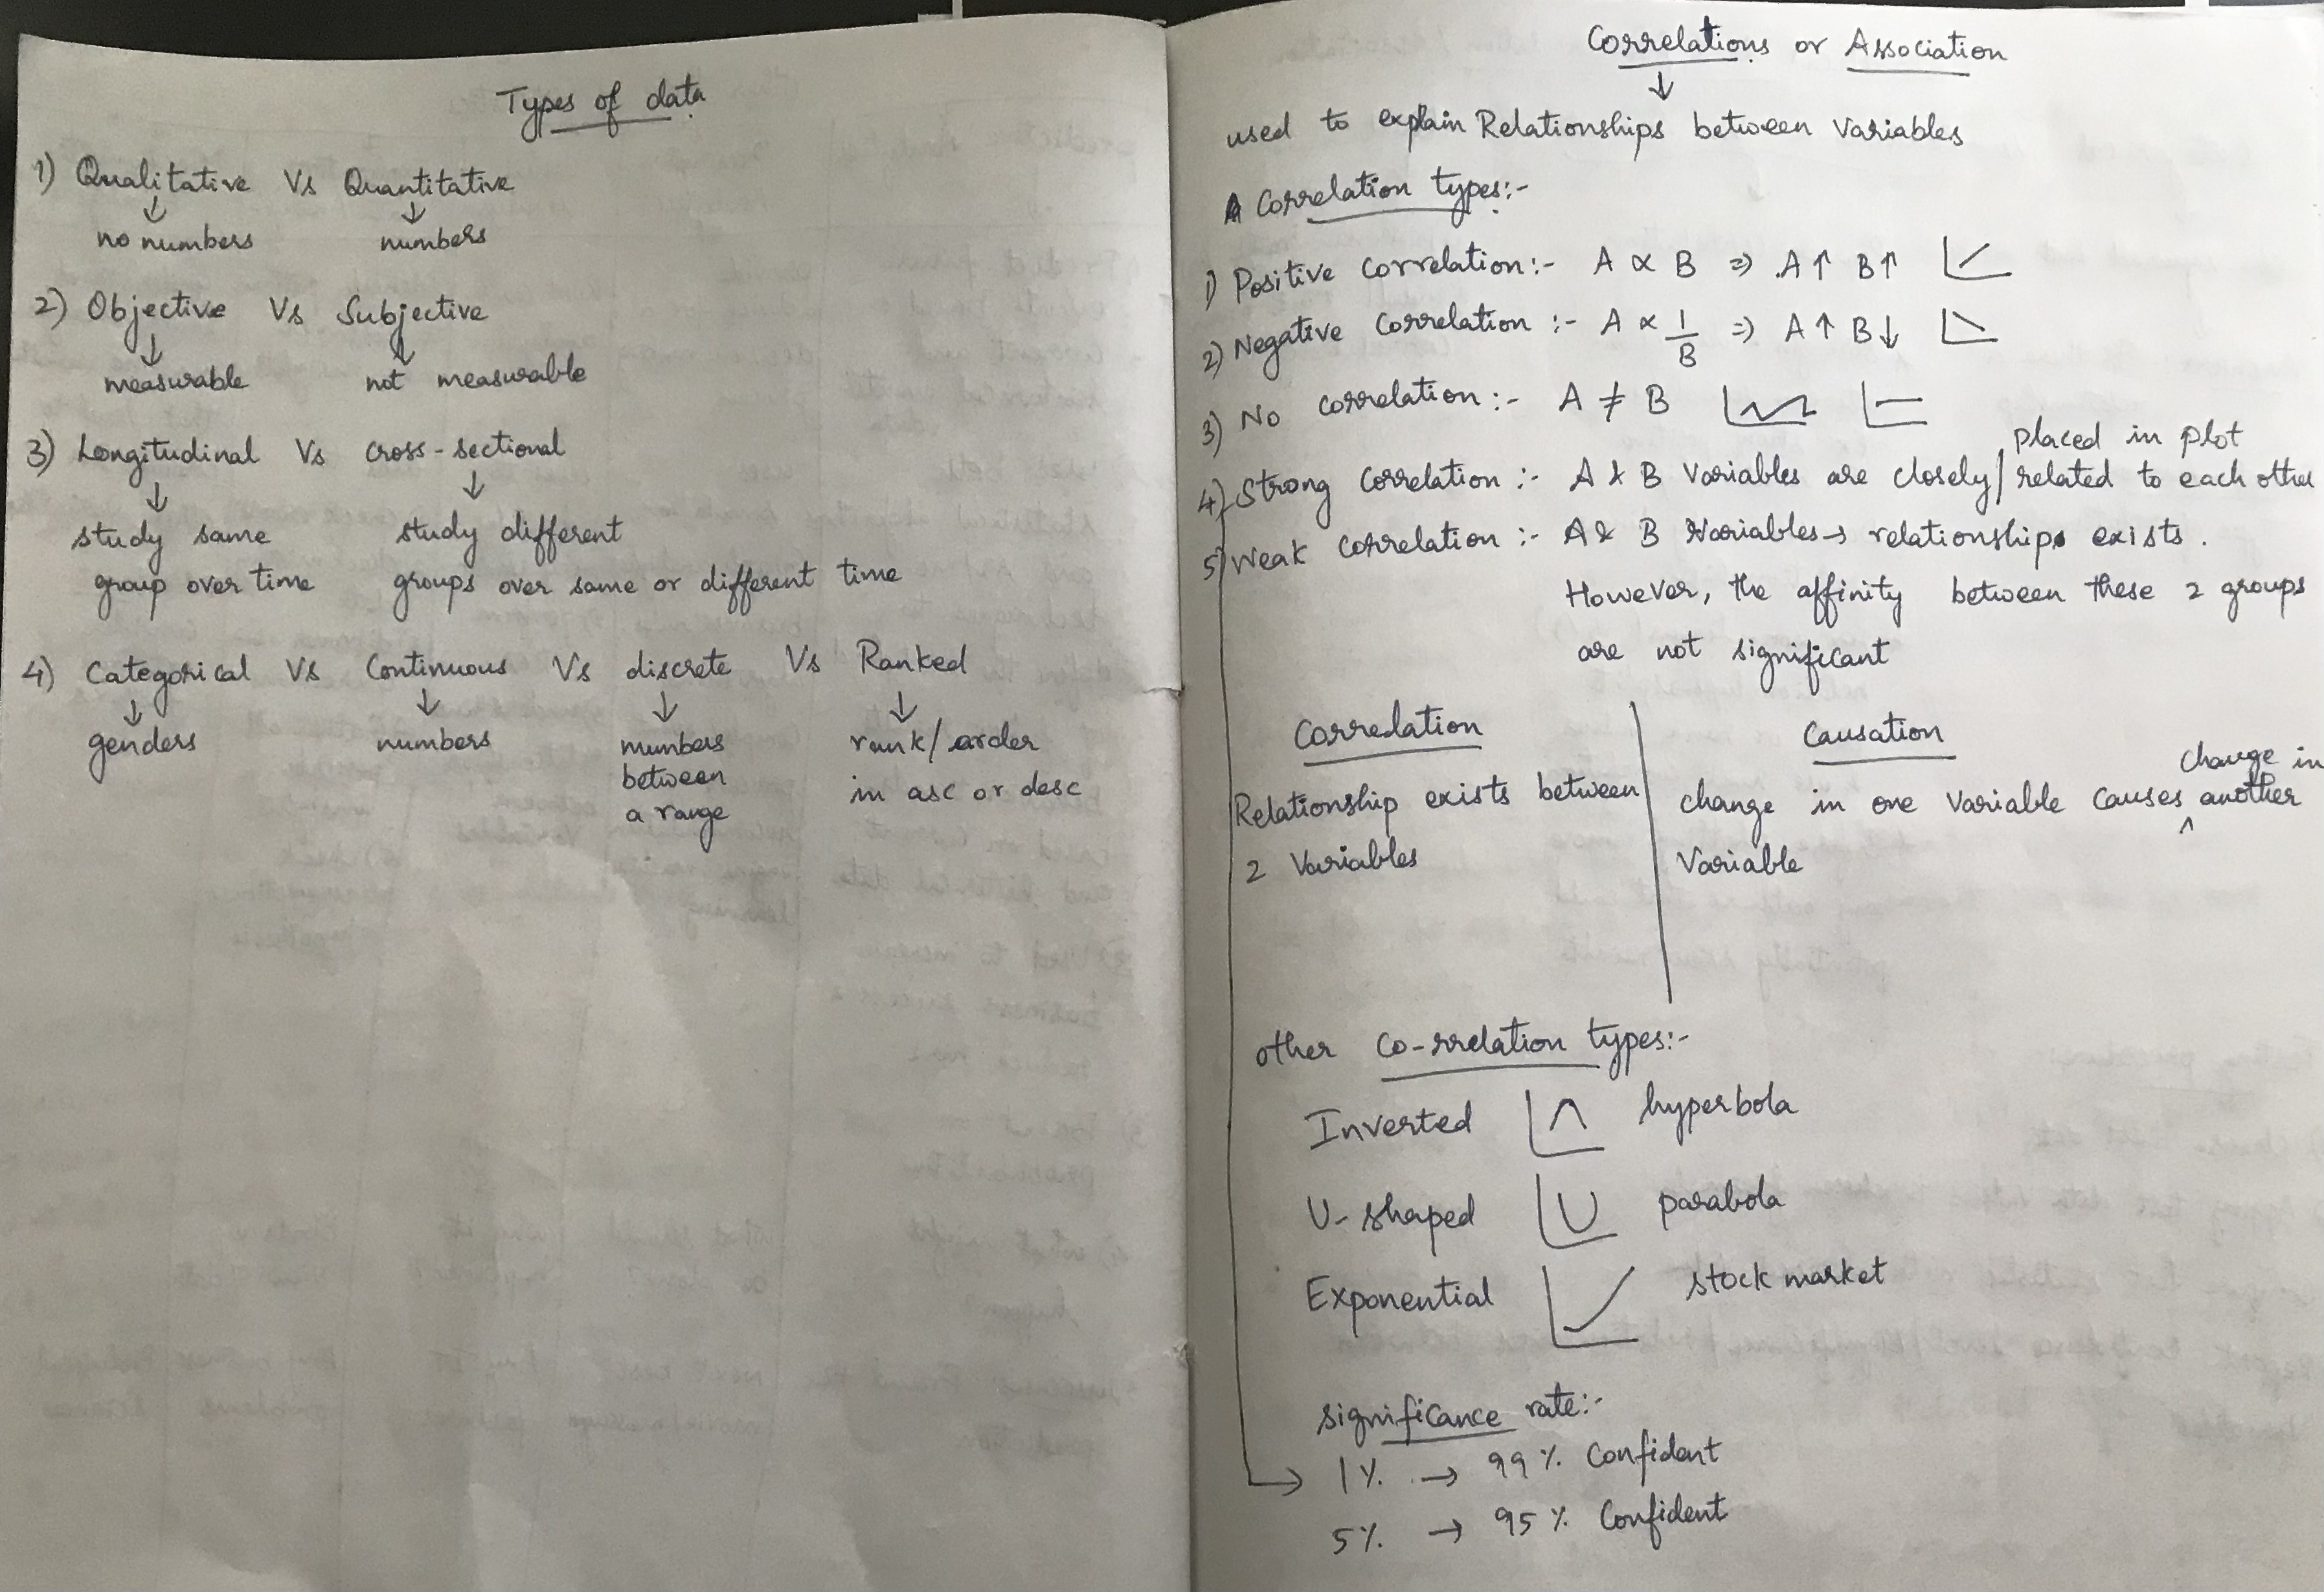 Types of data
1) Qualitative Vs Quantitative
↓ ↓
no numbers numbers
2) Objective Vs Subjective
↓ ↓
measurable not measurable
3) Longitudinal Vs cross-sectional
↓ ↓
study same study different
group over time groups over same or different time
4) Categorical Vs Continuous Vs discrete Vs Ranked
↓ ↓ ↓ ↓
genders numbers numbers rank/order
between in asc or desc
a range
Correlations or Association
↓
used to explain Relationships between Variables
Correlation types:-
1) Positive correlation:- A ∝ B ⇒ A↑ B↑
2) Negative correlation :- A ∝ 1/B ⇒ A↑ B↓
3) No correlation:- A ≠ B
placed in plot
4) Strong correlation :- A & B Variables are closely/related to each other
5) Weak correlation :- A & B Variables → relationships exists.
However, the affinity between these 2 groups
are not significant
Correlation Causation
change in
Relationship exists between change in one Variable causes ^ another
2 Variables Variable
other Co-rrelation types:-
Inverted hyperbola
U-shaped parabola
Exponential stock market
significance rate:-
→ 1% → 99% Confident
5% → 95% Confident